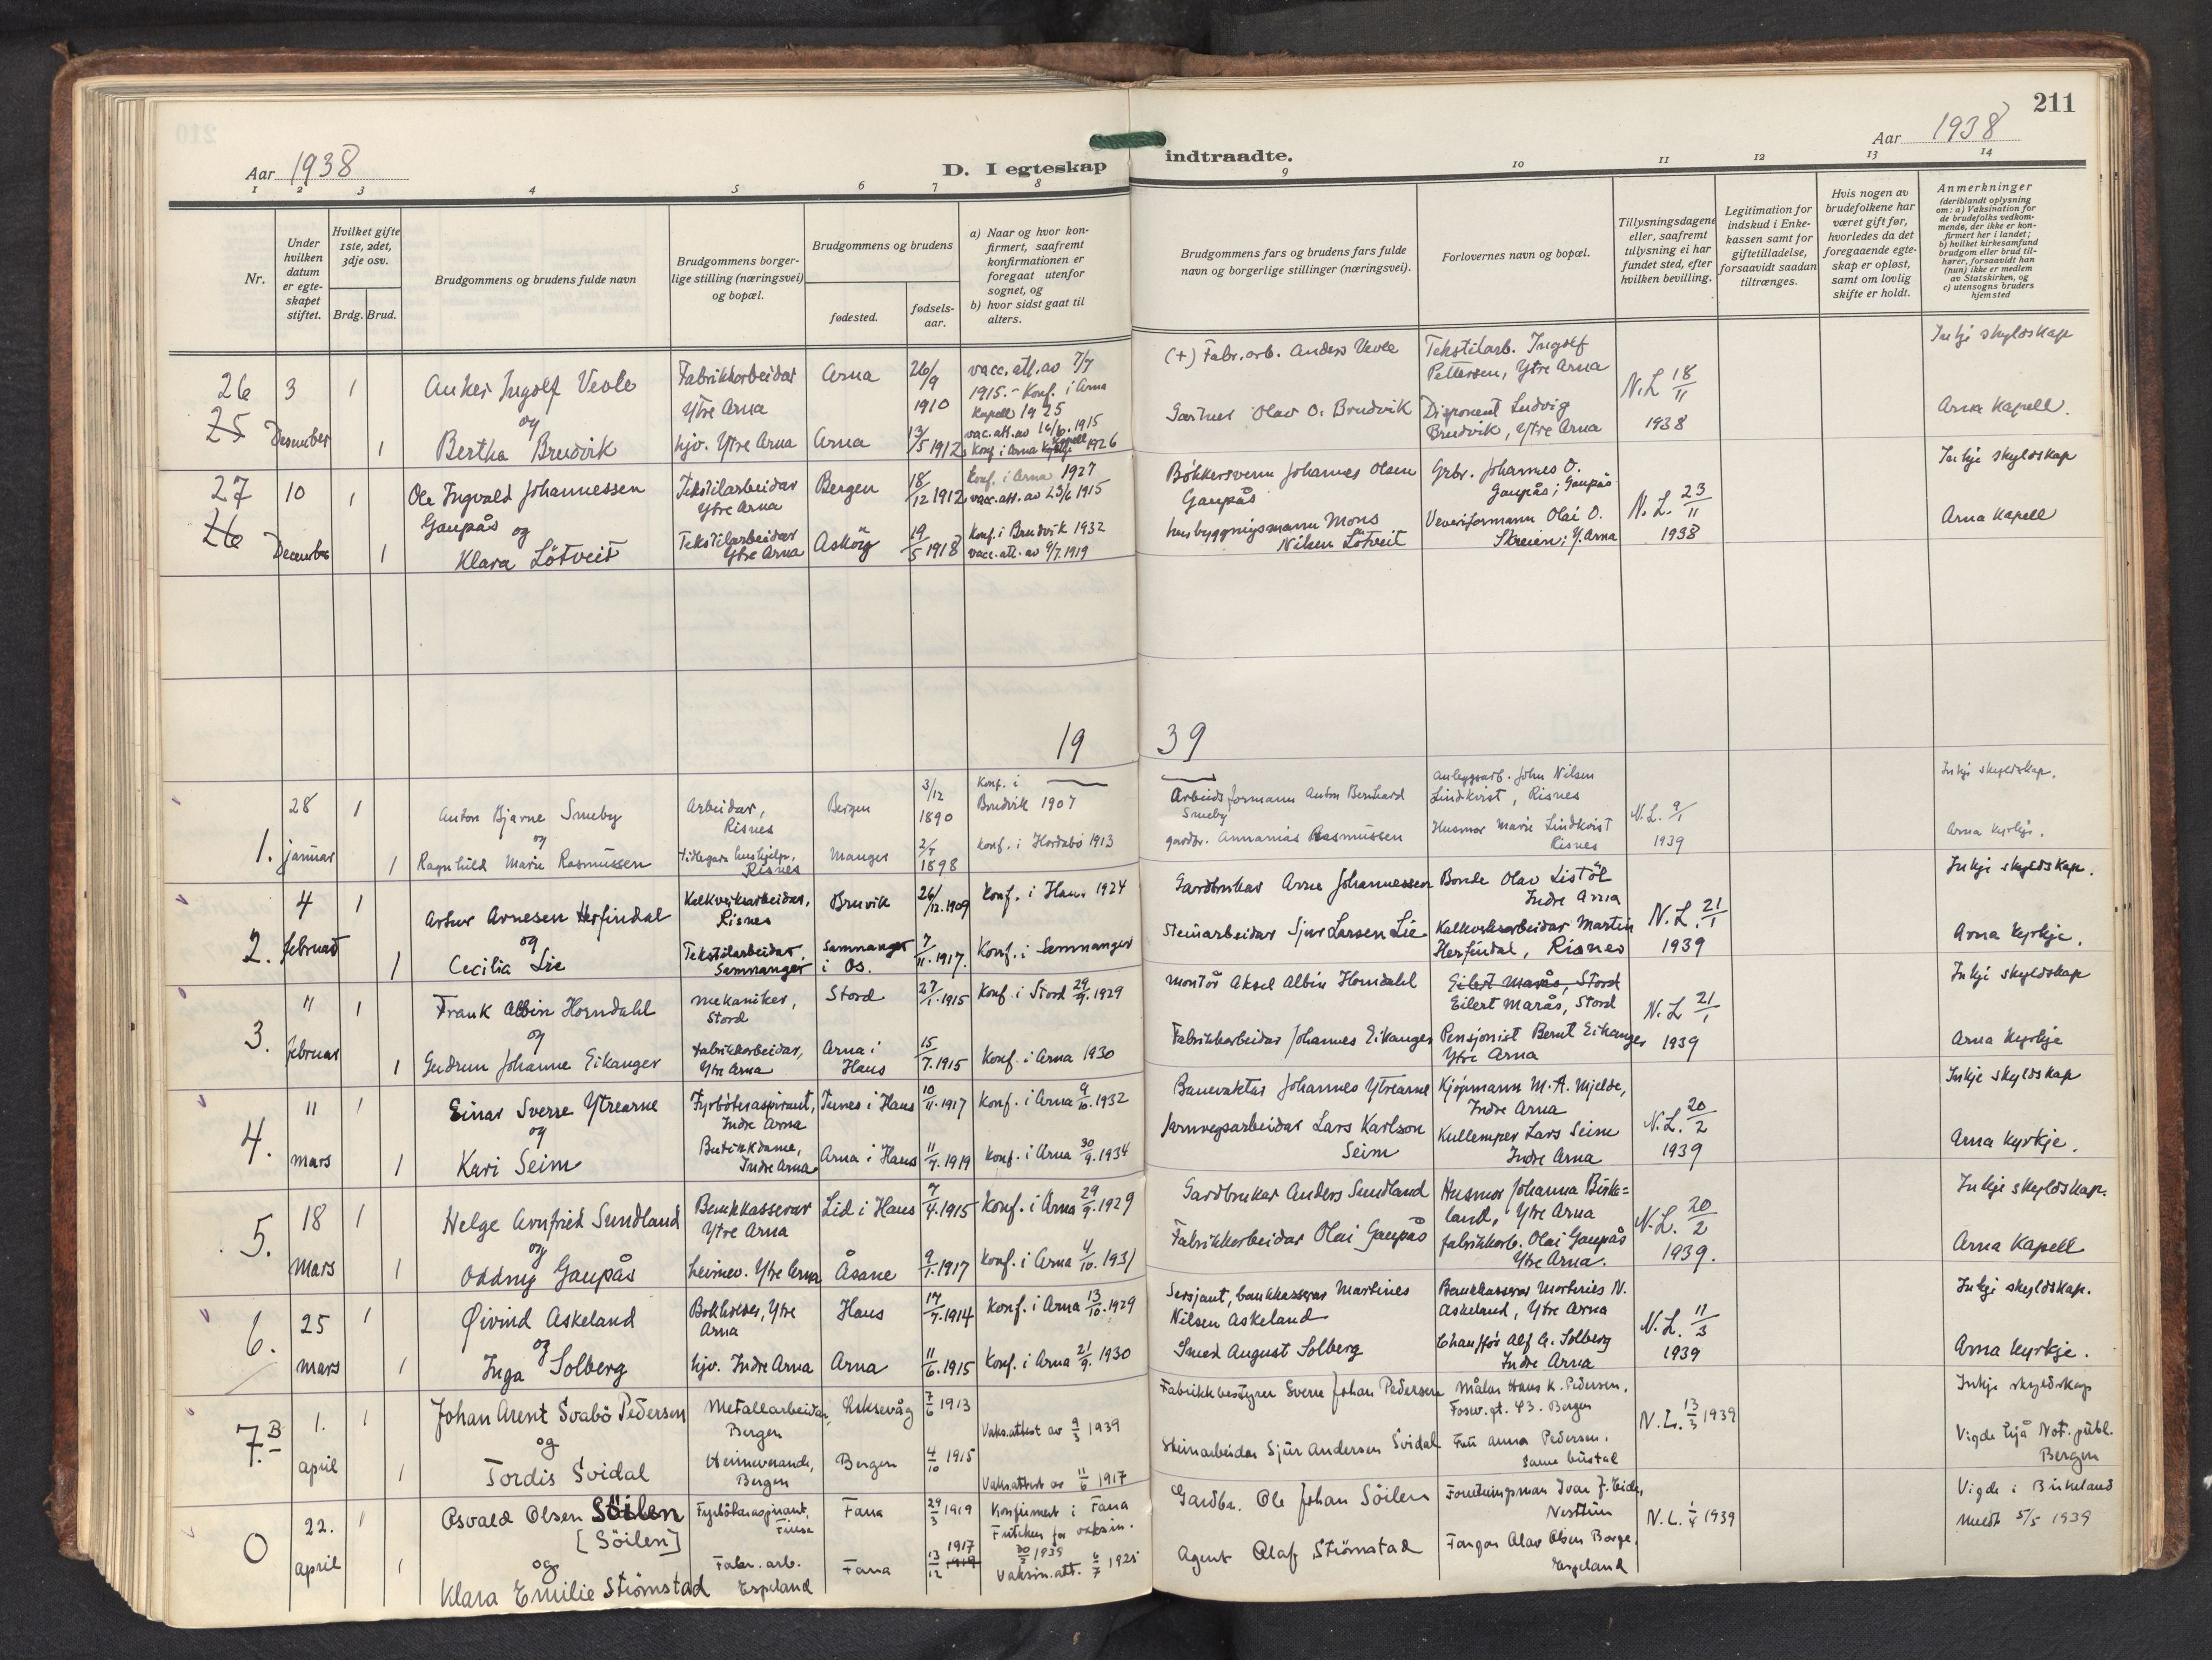 211
Aar 1938
D. I egteskap indtraadte.
Aar 1938
1 2 3 4 5 6 7 8 9 10 11 12 13 14
Nr.
Under hvilken datum er egteskapet stiftet.
Hvilket gifte 1ste, 2det, 3dje osv.
Brdg. Brud.
Brudgommens og brudens fulde navn
Brudgommens borgerlige stilling (næringsvei) og bopæl.
Brudgommens og brudens
fødested.
fødselsaar.
a) Naar og hvor konfirmert, saafremt konfirmationen er foregaat utenfor sognet, og
b) hvor sidst gaat til alters.
Brudgommens fars og brudens fars fulde navn og borgerlige stillinger (næringsvei).
Forlovernes navn og bopæl.
Tillysningsdagene eller, saafremt tillysning ei har fundet sted, efter hvilken bevilling.
Legitimation for indskud i Enkekassen samt for giftetilladelse, forsaavidt saadan tiltrænges.
Hvis nogen av brudefolkene har været gift før, hvorledes da det foregaaende egteskap er opløst, samt om lovlig skifte er holdt.
Anmerkninger (deriblandt oplysning om: a) Vaksination for de brudefolks vedkommende, der ikke er konfirmert her i landet; b) hvilket kirkesamfund brudgom eller brud tilhører, forsaavidt han (hun) ikke er medlem av Statskirken, og c) utensogns bruders hjemsted
26 3 1 Anker Ingolf Veole Fabrikkarbeidar Ytre Arna Arna 26/9 1910 vacc. att. av 7/7 1915. - Konf. i Arna Kapell 1925 (+) Fabr. arb. Anders Veole Tekstilarb. Ingolf Pettersen, Ytre Arna N.L. 18/11 1938 Inkje skyldskap
25 Desember og
1 Bertha Brudvik hjv. Ytre Arna Arna 13/5 1912 vac. att. av 16/6. 1915 Konf i Arna Kapell 1926 Gartner Olav O. Brudvik Disponent Ludvig Brudvik, Ytre Arna Arna Kapell.
27 10 1 Ole Ingvald Johannessen Gaupås Tekstilarbeidar Ytre Arna Bergen 18/12 1912 Konf. i Arna 1927 vacc. att. av 23/6 1915 Bökkersvenn Johannes Olsen Gaupås Grbr. Johannes O. Gaupås; Gaupås N.L. 23/11 1938 Inkje skyldskap
26 Decembr og
1 Klara Lötveit Tekstilarbeidar Ytre Arna Asköy 19/5 1918 Konf. i Brudvik 1932 vacc. att. av 9/7. 1919 husbyggnigsmann Mons Nilsen Lötveit Veveriformann Olai O. Skreien; Y. Arna Arna Kapell
19 39
1. 28 januar 1 Anton Bjarne Smeby Arbeidar, Risnes Bergen 3/12 1890 Konf. i Brudvik 1907 Arbeidsformann Anton Bernhard Smeby anleggsarb. John Nilsen Lindkvist, Risnes N.L. 9/1 1939 Inkje skyldskap.
og
1 Ragnhild Marie Rasmussen tidlegare hushjelp, Risnes Manger 2/7 1898 konf. i Hordabö 1913 gardbr. Annanias Rasmussen Husmor Marie Lindkvist Risnes Arna kyrkje.
2. 4 februar 1 Artur Arnesen Herfindal Kalkverksarbeidar, Risnes Bruvik 26/12. 1909 Konf. i Haus 1924 Gardbrukar Arne Johannessen Bonde Olav Listöl Indre Arna N.L. 21/1 1939 Inkje skyldskap.
og
1 Cecilia Lie Tekstilarbeidar, Samnanger Samnanger i Os. 7/11. 1917. Konf. i Samnanger Steinarbeidar Sjur Larsen Lie Kalkverksarbeidar Martin Herfindal, Risnes Arna kyrkje.
3. " februar 1 Frank Albin Horndahl mekaniker, Stord Stord 27/1. 1915 Konf. i Stord 29/9. 1929 montör Aksel Albin Horndahl Eilert Marås, Stord Eilert Marås, Stord N.L. 21/1 1939 Inkje skyldskap
og
1 Gudrun Johanne Eikanger Fabrikkarbeidar, Ytre Arna Arna i Haus 15/7. 1915 Konf. i Arna 1930 Fabrikkarbeidar Johannes Eikanger Pensjonist Bernt Eikanger Ytre Arna Arna Kyrkje
4. 11 mars 1 Einar Sverre Ytrearne Fyrböteraspirant, Indre Arna Tunes i Haus 10/11. 1917 Konf. i Arna 9/10. 1932 Banevaktar Johannes Ytrearne Kjöpmann M. A. Mjelde, Indre Arna N.L. 20/2 1939 Inkje skyldskap
og
1 Kari Seim Butikkdame, Indre Arna Arna i Haus 11/7. 1919 konf. i Arna 30/9. 1934 Jarnvegsarbeidar Lars Karlson Seim Kullemper Lars Seim Indre Arna Arna kyrkje.
5. 18 Mars 1 Helge Arnfred Sundland Bankkasserar Ytre Arna Lid i Haus 7/4. 1915 Konf. i Arna 29/9. 1929 Gardbrukar Anders Sundland Husmor Johanna Birkeland, Ytre Arna N.L. 20/2 1939. Inkje skyldskap.
og
1 Oddny Gaupås heimev. Ytre Arna Åsane 9/1. 1917 Konf. i Arna 4/10. 1931 Fabrikkarbeidar Olai Gaupås fabrikkarb. Olai Gaupås Ytre Arna. Arna Kapell
6. 25 mars 1 Øivind Askeland Bokholder, Ytre Arna Haus 17/7. 1914 konf. i Arna 13/10. 1929 Sersjant, bankkasserar Martines Nilsen Askeland Bankkasserar Martines N. Askeland, Ytre Arna N.L. 11/3 1939 Inkje skyldskap.
og
1 Inga Solberg hjv. Indre Arna Arna 11/6. 1915 Konf. i Arna 21/9. 1930 Smed August Solberg Chauffør Alf A. Solberg Indre Arna Arna kyrkje.
7.B 1. april 1 Johan Arent Svabö Pedersen Metallarbeidar, Bergen Laksevåg 7/6 1913 Vaks. attest av 9/3 1939 Fabrikkbestyrer Sverre Johan Pedersen Målar Hans K. Pedersen, Fosw. gt. 43. Bergen N.L. 13/3 1939 Inkje skyldskap
og
1 Tordis Svidal Heimeverande, Bergen Bergen 4/10 1915 Vaks. attest av 11/6 1917 Steinarbeidar Sjur Andersen Svidal Fru Anna Pedersen. Same bustad Vigde hjå Not. publ. Bergen
O 22. april 1 Osvald Olsen Söilen [Söilen] Fyrböteraspirant, Finse Fana 29/3 1919 Konfirmert i Fana Friteken for vaksin. 30/3 1939 Gardbr. Ole Johan Söilen Nesttun N.L. 1/4 1939 Vigde i Birkeland
og
1 Klara Emilie Strömstad Fabr. arb. Espeland Fana 13/12 1917 Vaksin. att. 6/7 1925 Agent Olaf Strömstad Fargar Olav Olsen Borge, Espeland Meldt 5/5 1939